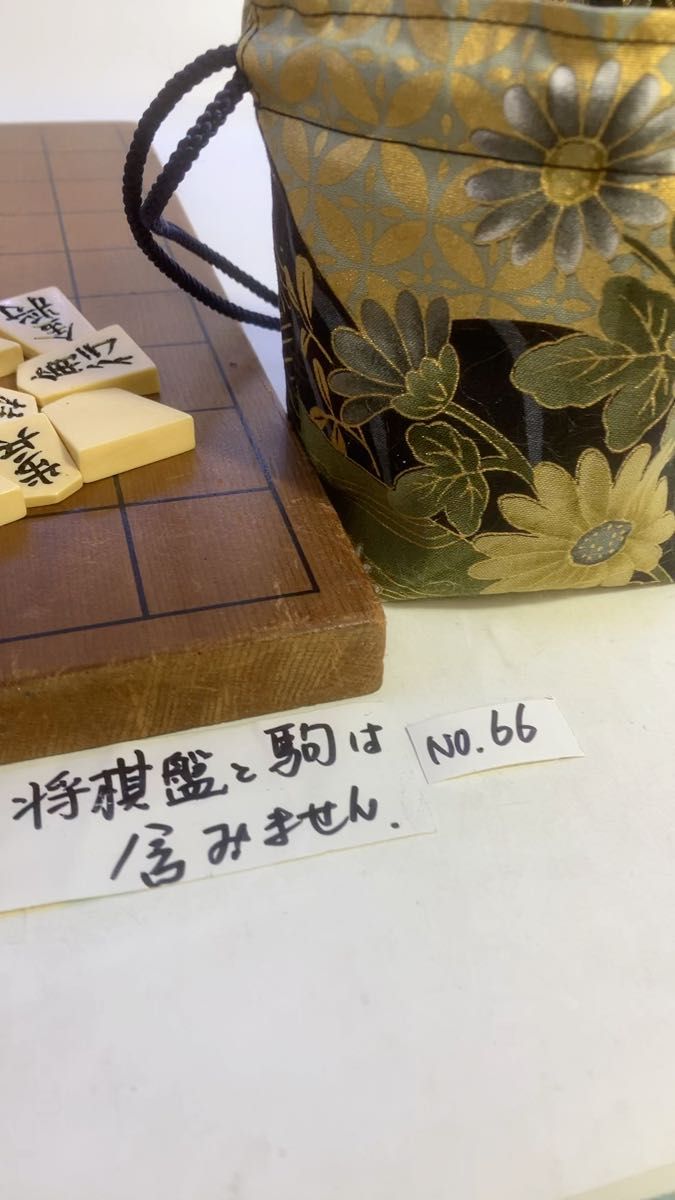 将棋盤と駒は
含みません.
NO.66
歩兵